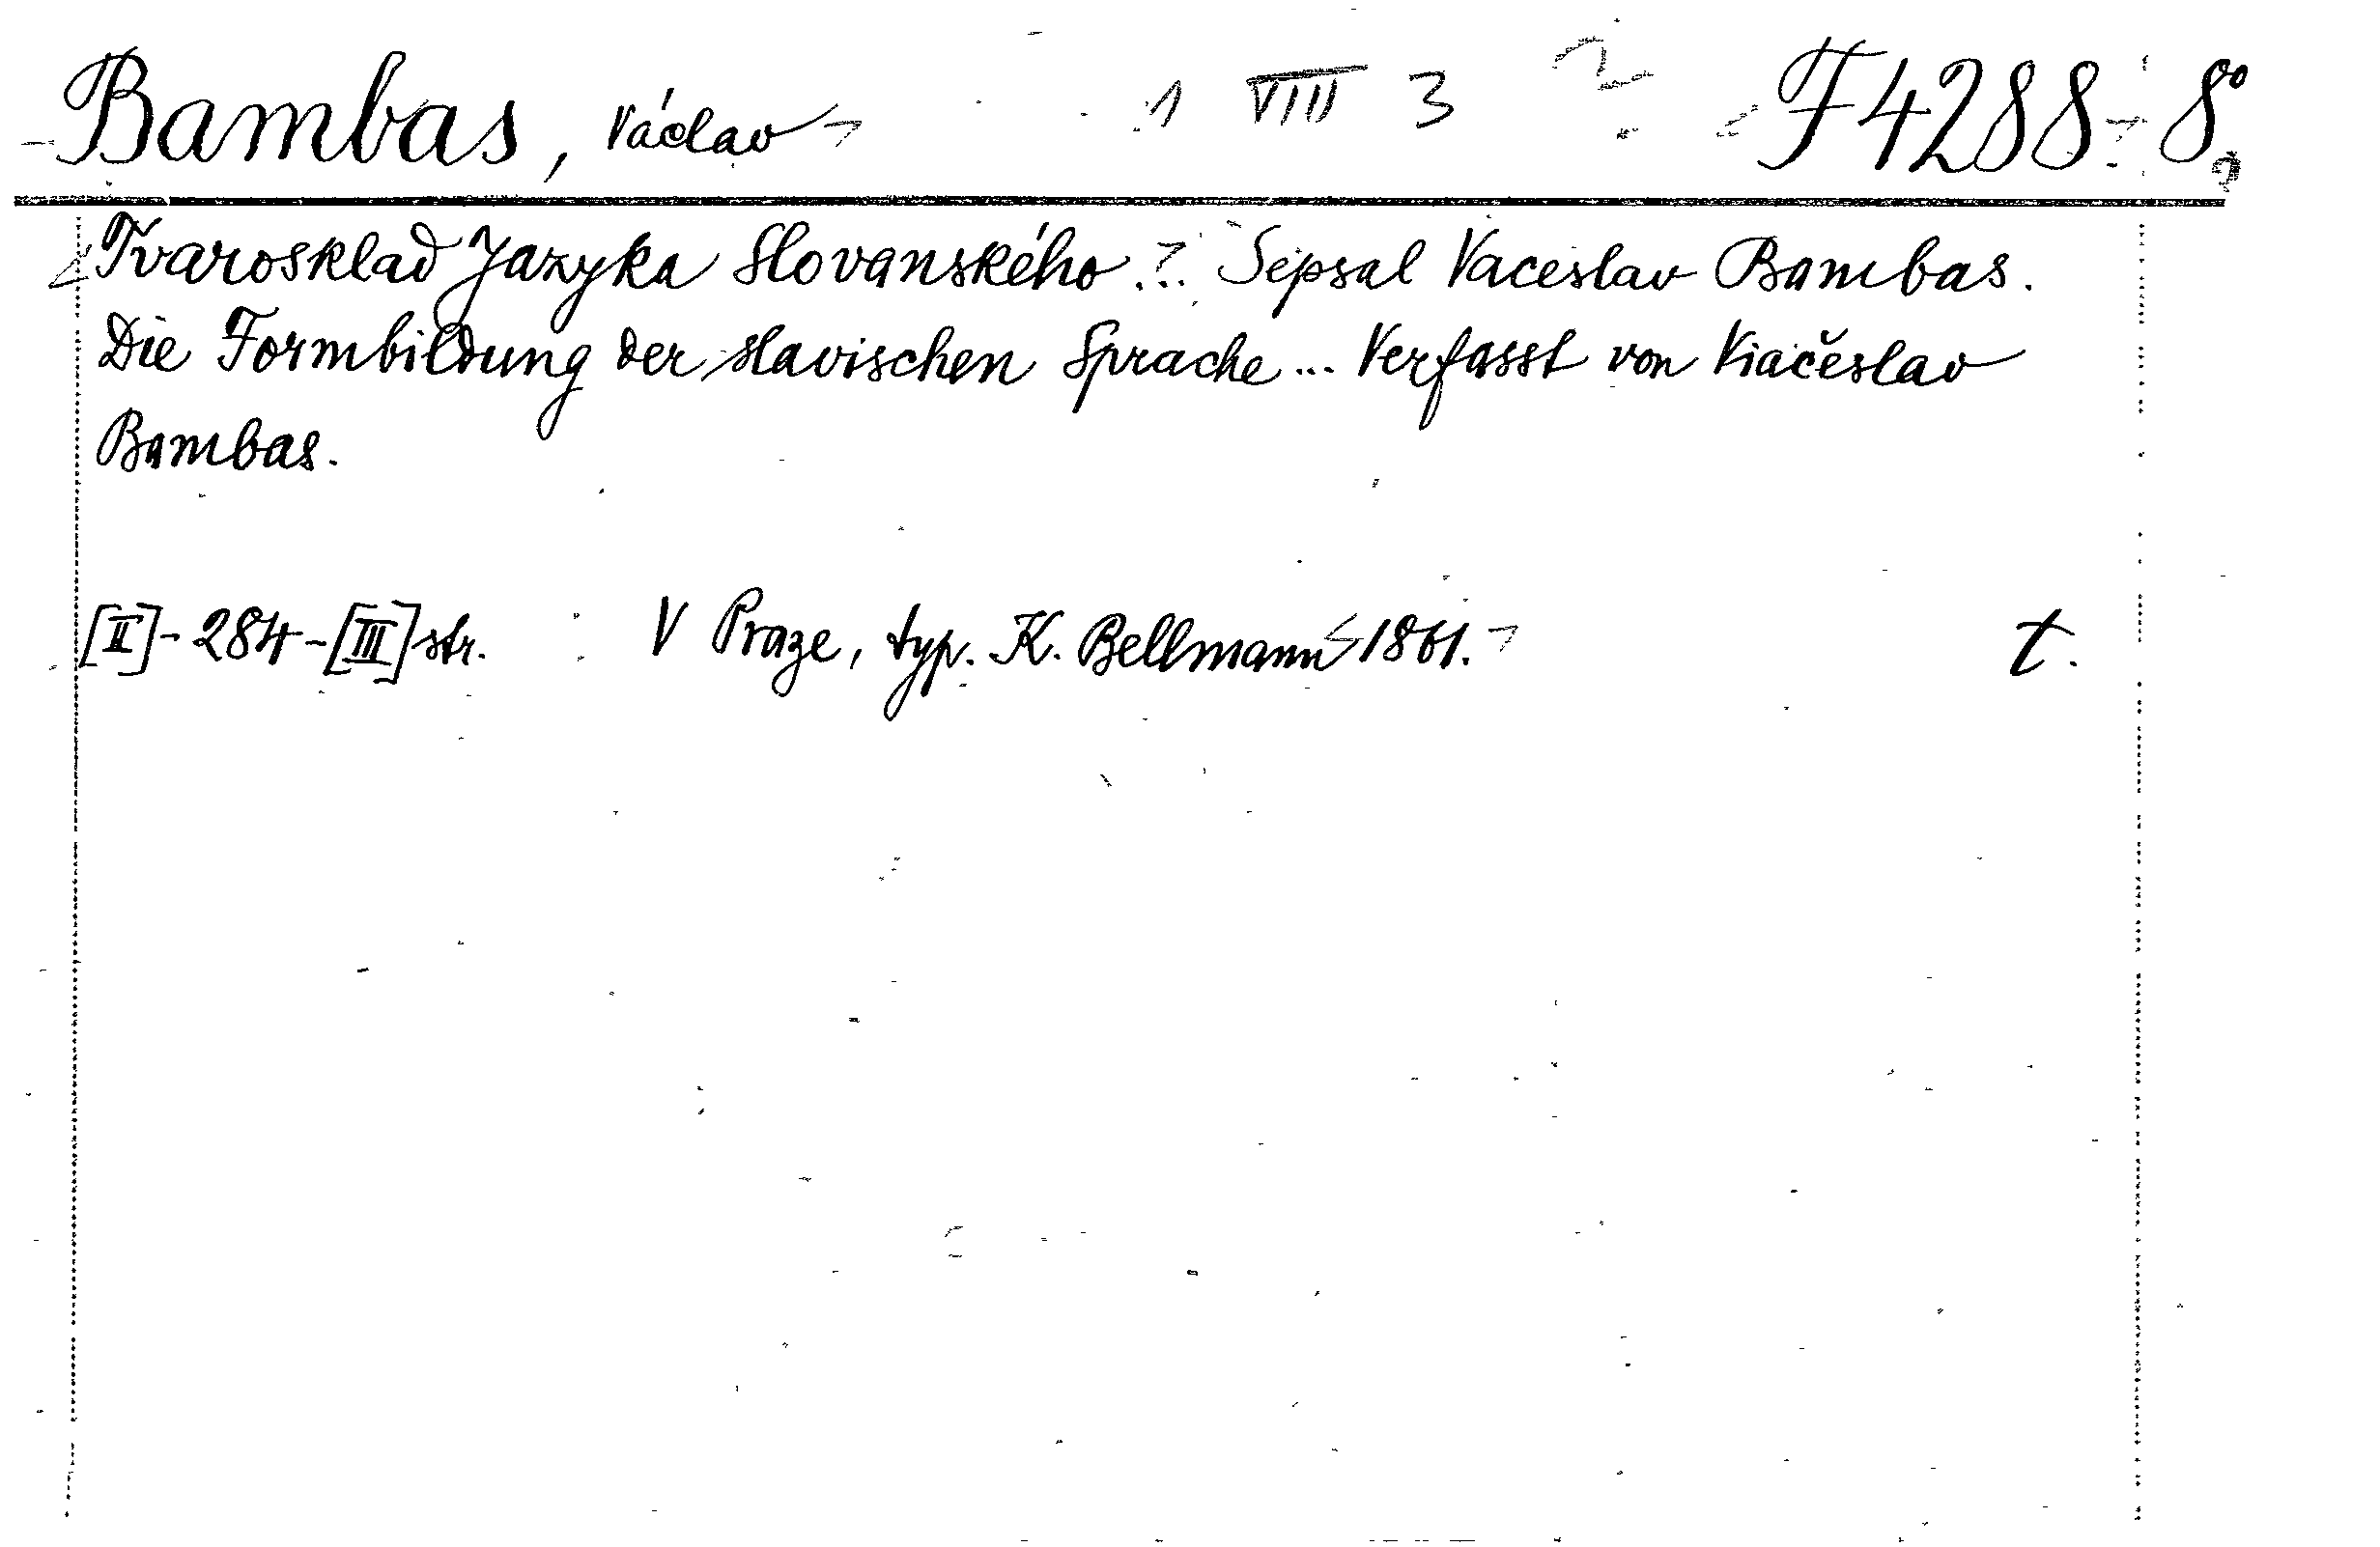 Bambas, Václav 1 VIII 3 F 4288 8°
Tvarosklad Jazyka Slovanského ... Sepsal Vaceslav Bambas.
Die Formbildung der slavischen Sprache ... Verfasst von Viačeslav
Bambas.
[II] - 284 - [III] str. V Praze, typ. K. Bellmann 1861. t.